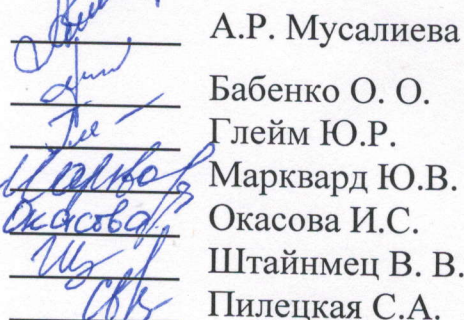 А.Р. Мусалиева
Бабенко О. О.
Глейм Ю.Р.
Марквард Ю.В.
Окасова Окасова И.С.
Штайнмец В. В.
Пилецкая С.А.